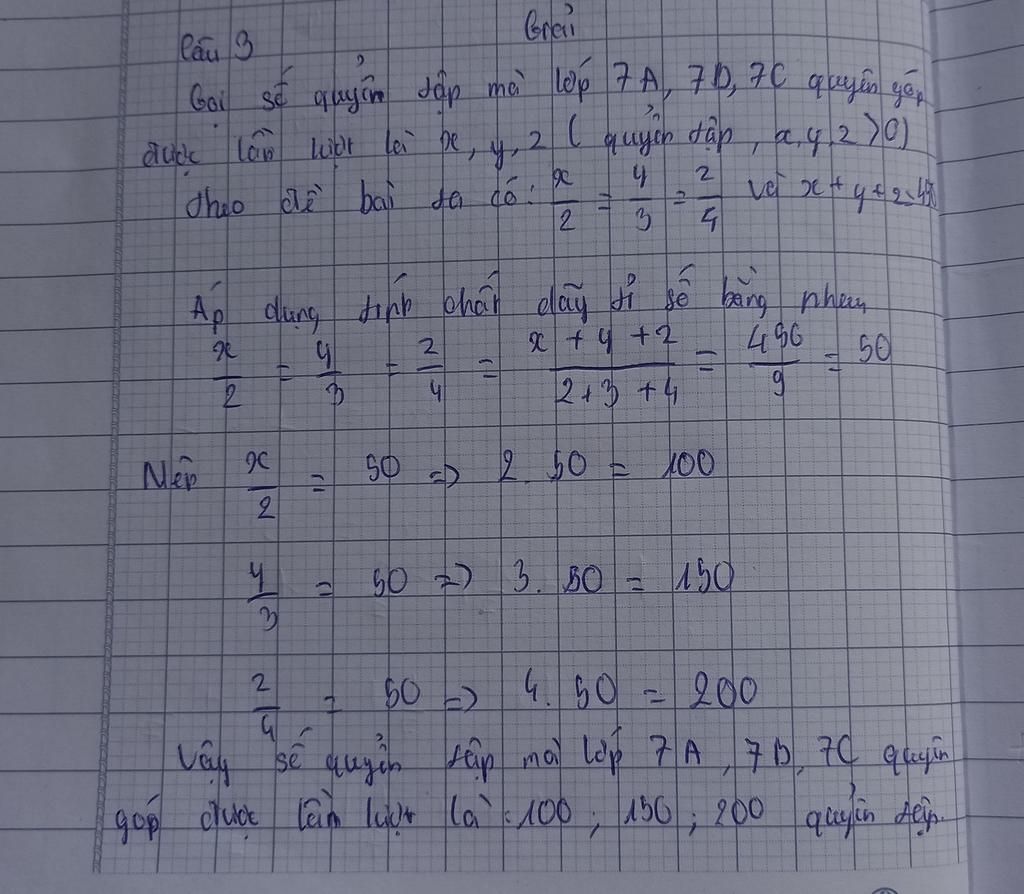 Câu 3 Giải
Gọi số quyển tập mà lớp 7A, 7B, 7C quyên góp
được lần lượt là x, y, z ( quyển tập, x, y, z > 0)
theo đề bài ta có: x/2 = y/3 = z/4 và x + y + z = 450
Áp dụng tính chất dãy tỉ số bằng nhau
x/2 = y/3 = z/4 = (x + y + z)/(2 + 3 + 4) = 450/9 = 50
Nếu x/2 = 50 => 2. 50 = 100
y/3 = 50 => 3. 50 = 150
z/4 = 50 => 4. 50 = 200
Vậy số quyển tập mà lớp 7A, 7B, 7C quyên
góp được lần lượt là: 100; 150; 200 quyển tập.